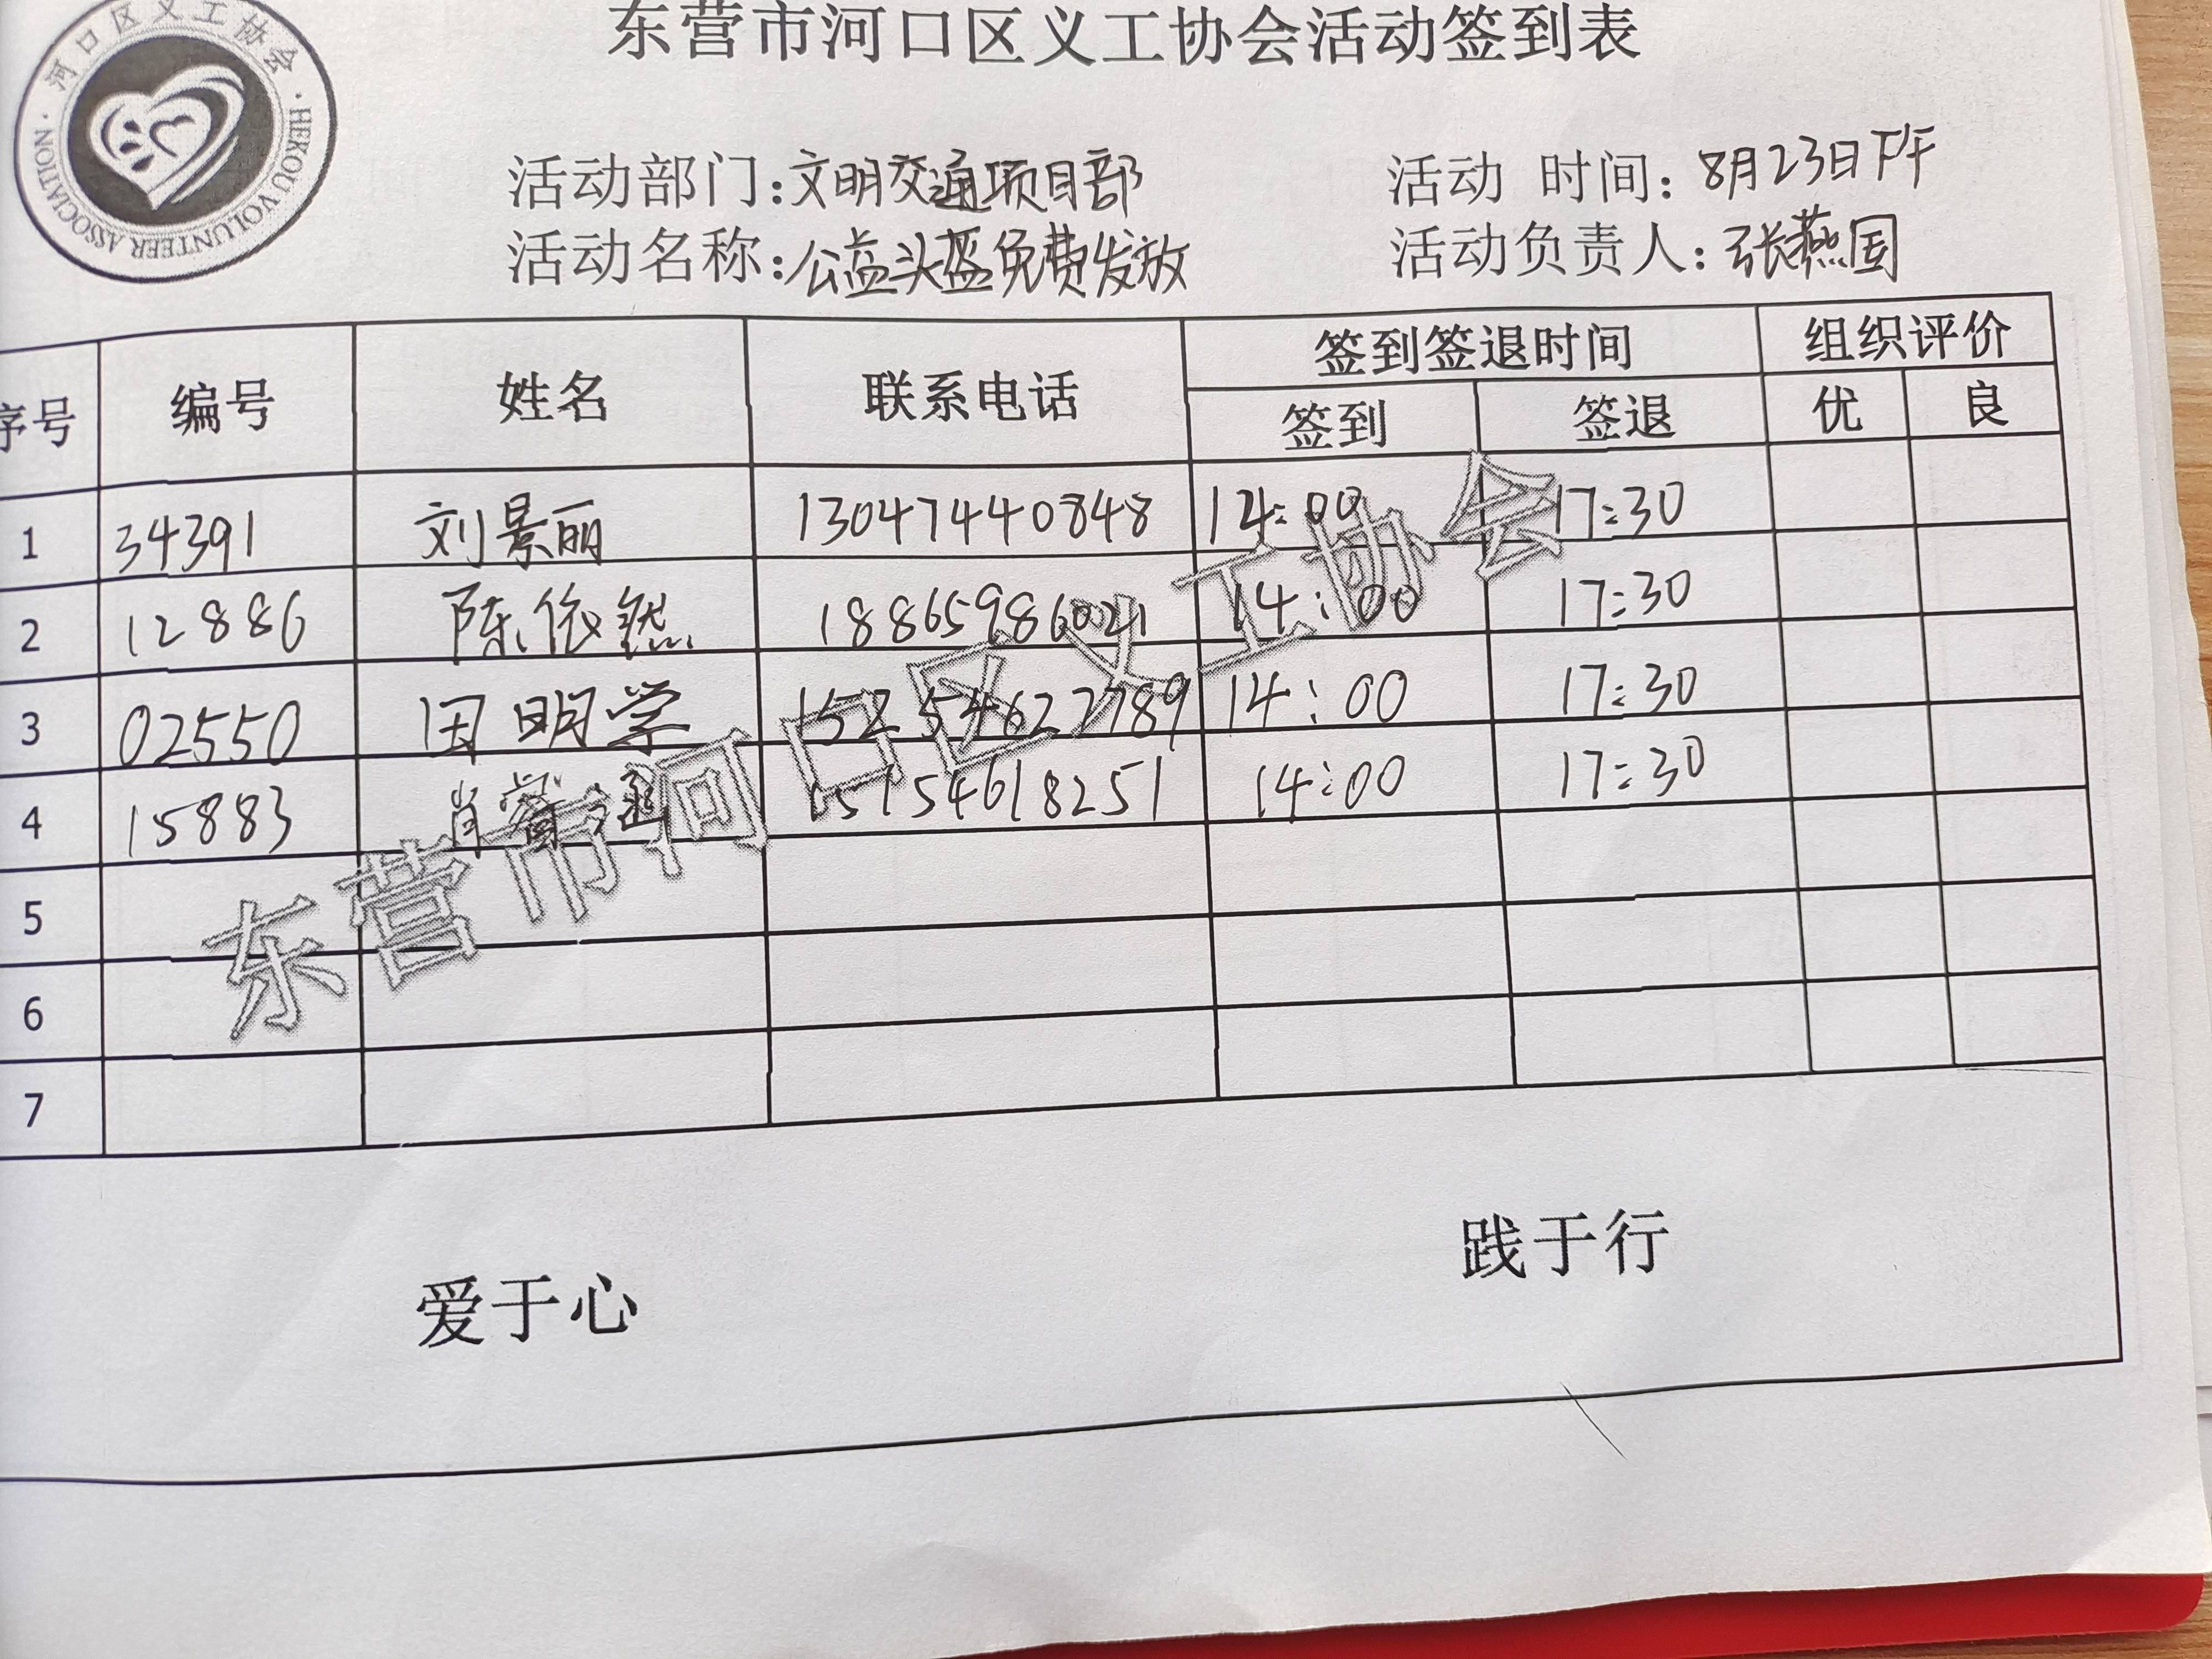 东营市河口区义工协会活动签到表
河口区义工协会
HEKOU VOLUNTEER ASSOCIATION
活动部门:文明交通项目部 活动 时间: 8月23日下午
活动名称:公益头盔免费发放 活动负责人: 张燕国
序号 编号 姓名 联系电话 签到签退时间 组织评价
签到 签退 优 良
1 34391 刘景丽 13047440848 14:00 17:30
2 12886 陈依然 18865986021 14:00 17:30
3 02550 田明学 14:00 17:30
4 15883 肖 涵 15154618251 14:00 17:30
5
6
7
东营市河口区义工协会
爱于心 践于行